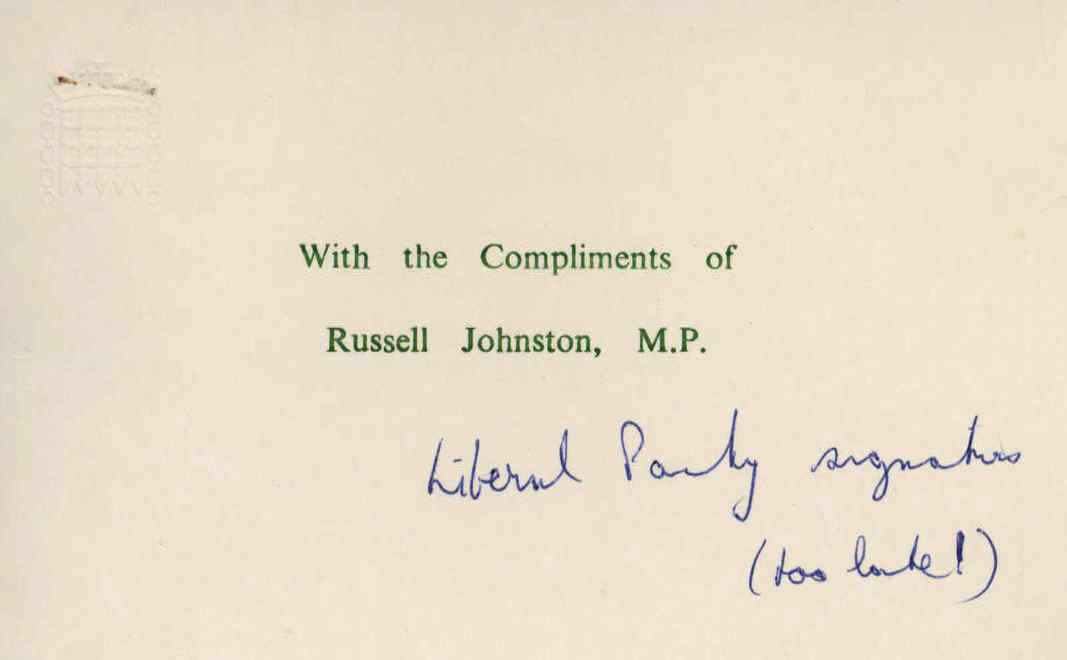 With the Compliments of
Russell Johnston, M.P.
Liberal Party signatures
(too late!)